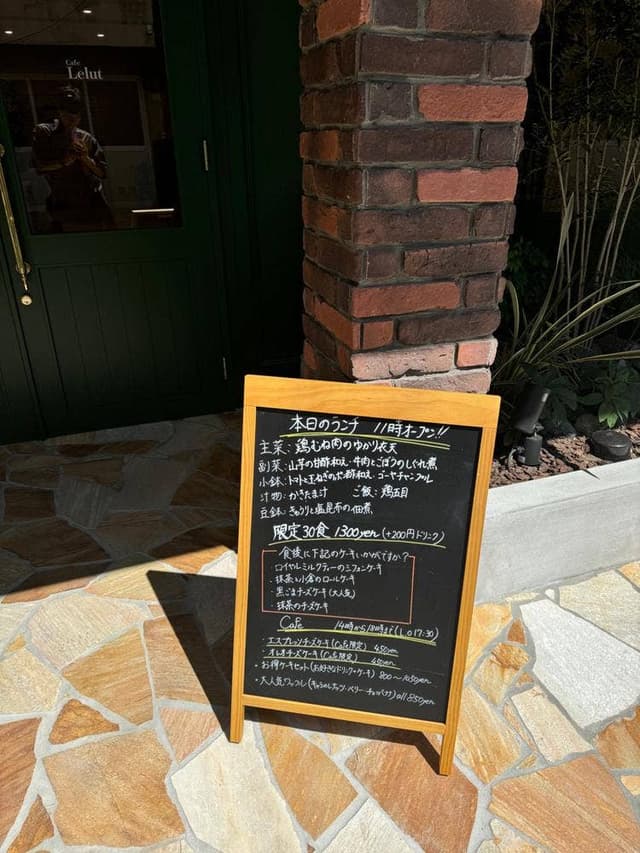 Cafe
Lelut
本日のランチ 11時オープン!!
主菜:鶏むね肉のゆかり衣天
副菜:山芋の甘酢和え・牛肉とごぼうのしぐれ煮
小鉢:トマトと玉ねぎのポン酢和え・ゴーヤチャンプル
汁物:かきたま汁 ご飯:鶏五目
豆鉢:きゅうりと塩昆布の佃煮
限定30食 1300yen (+200円ドリンク)
食後に下記のケーキいかがですか?
・ロイヤルミルクティーのシフォンケーキ
・抹茶と小倉のロールケーキ
・黒ごまチーズケーキ(大人気)
・抹茶のチーズケーキ
Cafe 14時から18時まで(L.O 17:30)
・エスプレッソチーズケーキ(Cafe限定) 450yen
・オレオチーズケーキ(Cafe限定) 450yen
・お得ケーキセット(お好きなドリンク+ケーキ) 800〜1050yen
・大人気ワッフル(キャラメルナッツ・ベリー・チョコバナナ) all 850yen